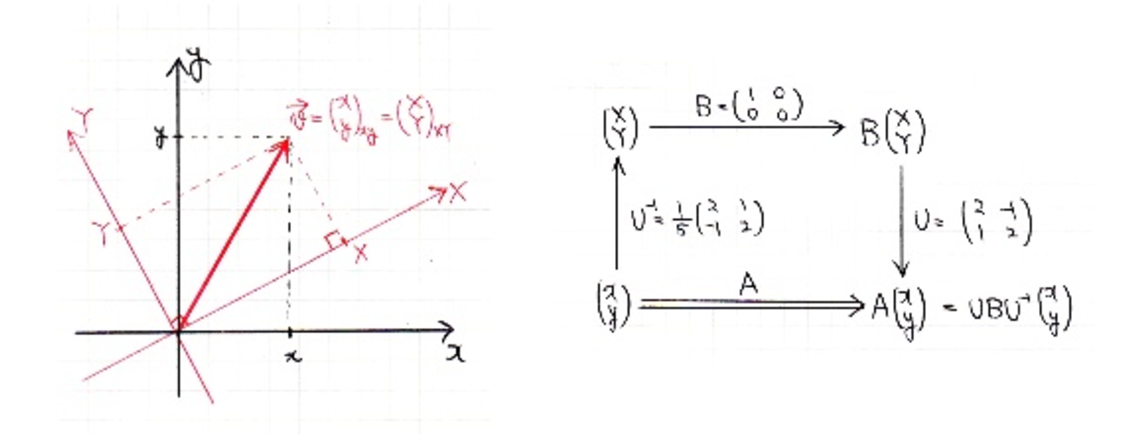 y
Y
v⃗ = (x y)xy = (X Y)XY
y
X
Y
X
x
x
(X Y)
B = (1 0 0 0)
B(X Y)
U⁻¹ = 1/5 (2 1 -1 2)
U = (2 -1 1 2)
(x y)
A
A(x y) = UBU⁻¹(x y)